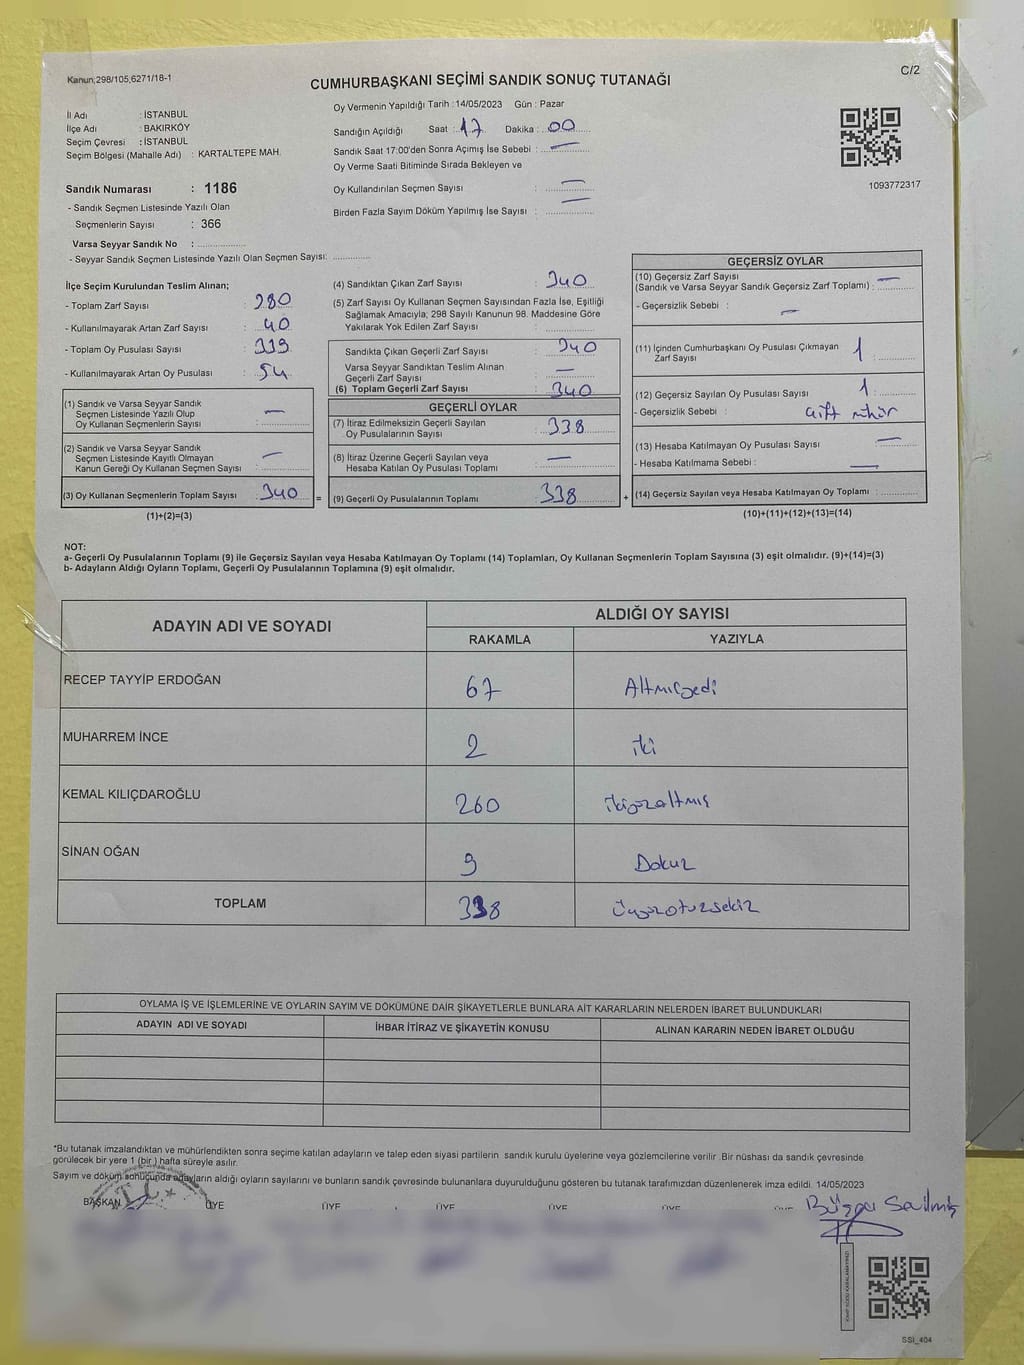 Kanun;298/105,6271/18-1
C/2
CUMHURBAŞKANI SEÇİMİ SANDIK SONUÇ TUTANAĞI
İl Adı : İSTANBUL
İlçe Adı : BAKIRKÖY
Seçim Çevresi : İSTANBUL
Seçim Bölgesi (Mahalle Adı) : KARTALTEPE MAH.
Oy Vermenin Yapıldığı Tarih :14/05/2023 Gün : Pazar
Sandığın Açıldığı Saat : 17 Dakika : 00
Sandık Saat 17:00'den Sonra Açımış İse Sebebi : —
Oy Verme Saati Bitiminde Sırada Bekleyen ve
Oy Kullandırılan Seçmen Sayısı : —
Birden Fazla Sayım Döküm Yapılmış İse Sayısı : —
1093772317
Sandık Numarası : 1186
- Sandık Seçmen Listesinde Yazılı Olan
Seçmenlerin Sayısı : 366
Varsa Seyyar Sandık No :
- Seyyar Sandık Seçmen Listesinde Yazılı Olan Seçmen Sayısı:
İlçe Seçim Kurulundan Teslim Alınan;
- Toplam Zarf Sayısı : 380
- Kullanılmayarak Artan Zarf Sayısı : 40
- Toplam Oy Pusulası Sayısı :
- Kullanılmayarak Artan Oy Pusulası : 54
(1) Sandık ve Varsa Seyyar Sandık
Seçmen Listesinde Yazılı Olup
Oy Kullanan Seçmenlerin Sayısı : —
(2) Sandık ve Varsa Seyyar Sandık
Seçmen Listesinde Kayıtlı Olmayan
Kanun Gereği Oy Kullanan Seçmen Sayısı : —
(3) Oy Kullanan Seçmenlerin Toplam Sayısı : 340 =
(1)+(2)=(3)
(4) Sandıktan Çıkan Zarf Sayısı : 340
(5) Zarf Sayısı Oy Kullanan Seçmen Sayısından Fazla İse, Eşitliği
Sağlamak Amacıyla; 298 Sayılı Kanunun 98. Maddesine Göre
Yakılarak Yok Edilen Zarf Sayısı :
Sandıkta Çıkan Geçerli Zarf Sayısı : 340
Varsa Seyyar Sandıktan Teslim Alınan
Geçerli Zarf Sayısı : —
(6) Toplam Geçerli Zarf Sayısı : 340
GEÇERLİ OYLAR
(7) İtiraz Edilmeksizin Geçerli Sayılan
Oy Pusulalarının Sayısı : 338
(8) İtiraz Üzerine Geçerli Sayılan veya
Hesaba Katılan Oy Pusulası Toplamı : —
(9) Geçerli Oy Pusulalarının Toplamı : 338 +
GEÇERSİZ OYLAR
(10) Geçersiz Zarf Sayısı
(Sandık ve Varsa Seyyar Sandık Geçersiz Zarf Toplamı) : —
- Geçersizlik Sebebi : —
(11) İçinden Cumhurbaşkanı Oy Pusulası Çıkmayan
Zarf Sayısı : 1
(12) Geçersiz Sayılan Oy Pusulası Sayısı : 1
- Geçersizlik Sebebi : çift mühür
(13) Hesaba Katılmayan Oy Pusulası Sayısı : —
- Hesaba Katılmama Sebebi : —
(14) Geçersiz Sayılan veya Hesaba Katılmayan Oy Toplamı :
(10)+(11)+(12)+(13)=(14)
NOT:
a- Geçerli Oy Pusulalarının Toplamı (9) ile Geçersiz Sayılan veya Hesaba Katılmayan Oy Toplamı (14) Toplamları, Oy Kullanan Seçmenlerin Toplam Sayısına (3) eşit olmalıdır. (9)+(14)=(3)
b- Adayların Aldığı Oyların Toplamı, Geçerli Oy Pusulalarının Toplamına (9) eşit olmalıdır.
ADAYIN ADI VE SOYADI
ALDIĞI OY SAYISI
RAKAMLA YAZIYLA
RECEP TAYYİP ERDOĞAN 67 Altmışyedi
MUHARREM İNCE 2 iki
KEMAL KILIÇDAROĞLU 260 ikiyüzaltmış
SİNAN OĞAN 9 Dokuz
TOPLAM 338 üçyüzotuzsekiz
OYLAMA İŞ VE İŞLEMLERİNE VE OYLARIN SAYIM VE DÖKÜMÜNE DAİR ŞİKAYETLERLE BUNLARA AİT KARARLARIN NELERDEN İBARET BULUNDUKLARI
ADAYIN ADI VE SOYADI İHBAR İTİRAZ VE ŞİKAYETİN KONUSU ALINAN KARARIN NEDEN İBARET OLDUĞU
*Bu tutanak imzalandıktan ve mühürlendikten sonra seçime katılan adayların ve talep eden siyasi partilerin sandık kurulu üyelerine veya gözlemcilerine verilir .Bir nüshası da sandık çevresinde
görülecek bir yere 1 (bir ) hafta süreyle asılır.
Sayım ve döküm sonucunda adayların aldığı oyların sayılarını ve bunların sandık çevresinde bulunanlara duyurulduğunu gösteren bu tutanak tarafımızdan düzenlenerek imza edildi. 14/05/2023
BAŞKAN ÜYE ÜYE ÜYE ÜYE ÜYE
T.C.
SSI_404